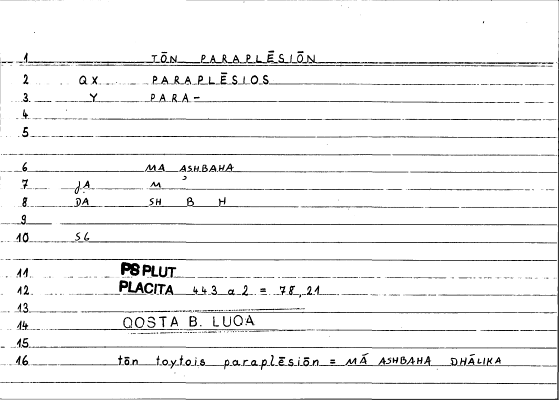 1 TŌN PARAPLĒSIŌN
2 QX PARAPLĒSIOS
3 Y PARA-
4
5
6 MĀ ASHBAHA
7 JA M ʾ
8 DA SH B H
9
10 S6
11 PS PLUT
12 PLACITA 443 a 2 = 78,21
13
14 QOSTA B. LUQA
15
16 tōn toytois paraplēsiōn = MĀ ASHBAHA DHĀLIKA